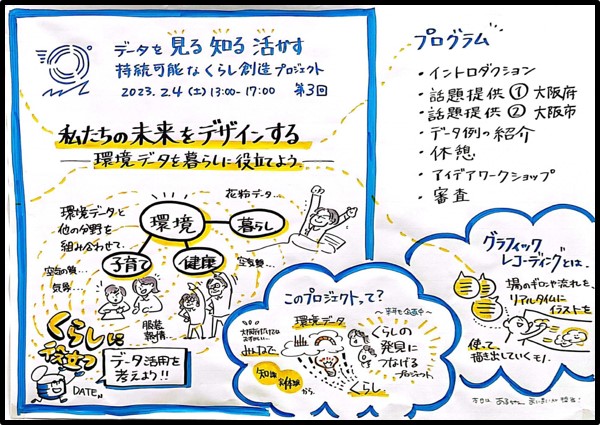 データを 見る 知る 活かす
持続可能な くらし創造 プロジェクト
2023. 2.4 (土) 13:00-17:00 第3回
私たちの未来をデザインする
環境データを暮らしに役立てよう。
花粉データ…
環境データと
他の分野を
組み合わせて、
環境
暮らし
子育て
健康
気象…
服装
くらしに
役立つ
データ活用を
考えよう!!
DATEN
プログラム
・イントロダクション
・話題提供 ① 大阪府
・話題提供 ② 大阪市
・データ例の紹介
・休憩
・アイデアワークショップ
・審査
グラフィック
レコーディングとは、
場のギロンや流れを、
リアルタイムに
イラストを
使って、
描き出していくモノ。
このプロジェクトって?
環境データ
みんなで、
知識
体験
から
くらしの
発見に
つなげる
プロジェクト
くらし